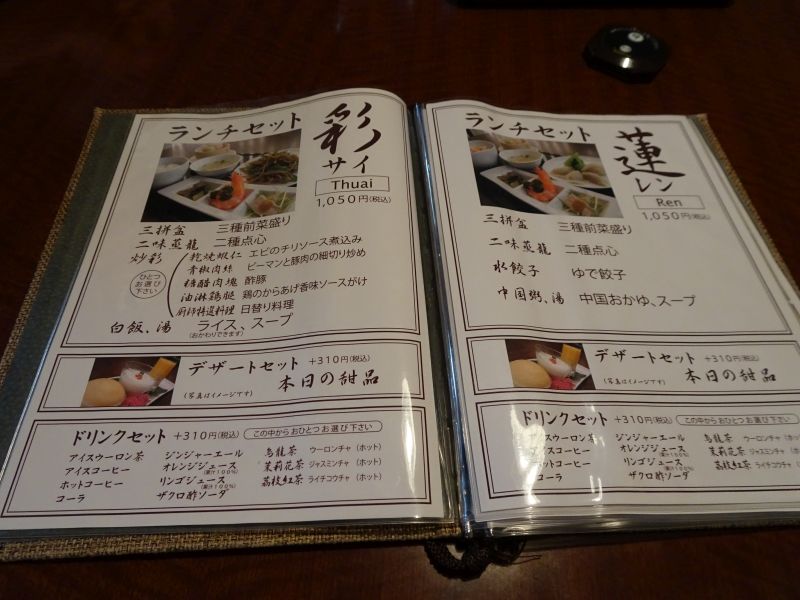 ランチセット
彩
サイ
Thuai
1,050円(税込)
三拼盆 三種前菜盛り
二味蒸籠 二種点心
炒彩
ひとつ
お選び
下さい
乾焼蝦仁 エビのチリソース煮込み
青椒肉絲 ピーマンと豚肉の細切り炒め
糖醋肉塊 酢豚
油淋鶏腿 鶏のからあげ香味ソースがけ
厨師特選料理 日替り料理
白飯、湯 ライス、スープ
(おかわりできます)
デザートセット +310円(税込)
(写真はイメージです) 本日の甜品
ドリンクセット +310円(税込) この中から おひとつ お選び 下さい
アイスウーロン茶 ジンジャーエール 烏龍茶 ウーロンチャ (ホット)
アイスコーヒー オレンジジュース (果汁100%) 茉莉花茶 ジャスミンチャ (ホット)
ホットコーヒー リンゴジュース (果汁100%) 茘枝紅茶 ライチコウチャ (ホット)
コーラ ザクロ酢ソーダ
ランチセット
蓮
レン
Ren
1,050円(税込)
三拼盆 三種前菜盛り
二味蒸籠 二種点心
水餃子 ゆで餃子
中国粥、湯 中国おかゆ、スープ
デザートセット +310円(税込)
(写真はイメージです) 本日の甜品
ドリンクセット +310円(税込) この中から おひとつ お選び 下さい
アイスウーロン茶 ジンジャーエール 烏龍茶 ウーロンチャ (ホット)
アイスコーヒー オレンジジュース (果汁100%) 茉莉花茶 ジャスミンチャ (ホット)
ホットコーヒー リンゴジュース (果汁100%) 茘枝紅茶 ライチコウチャ (ホット)
コーラ ザクロ酢ソーダ